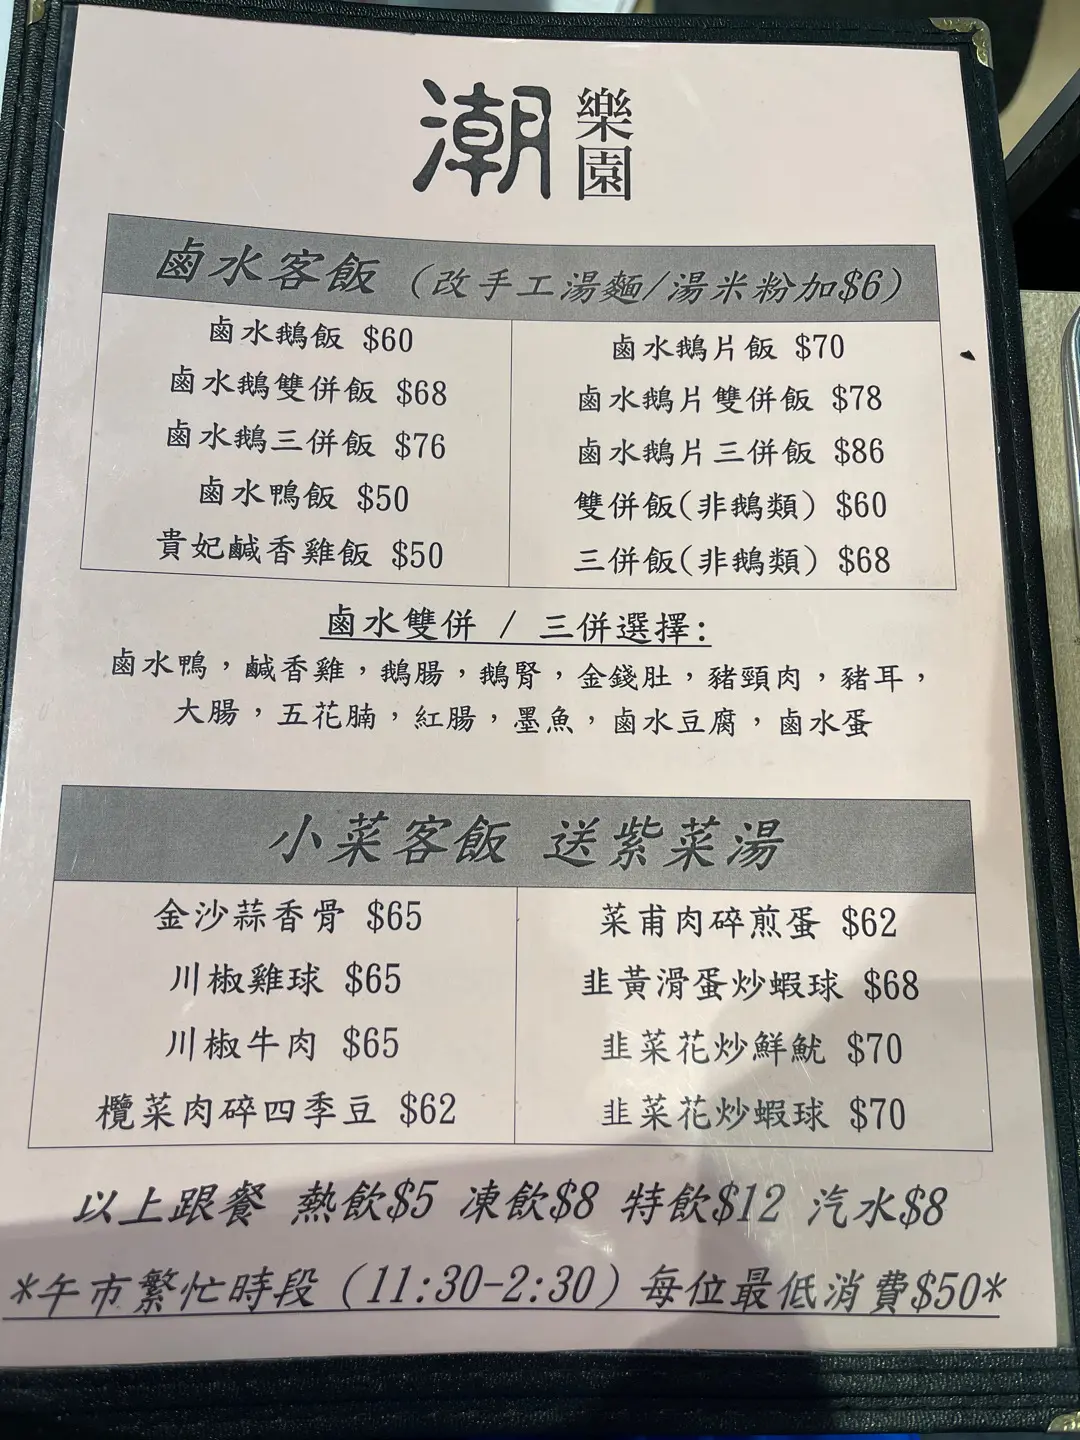 潮樂園
鹵水客飯 (改手工湯麵/湯米粉加$6)
鹵水鵝飯 $60
鹵水鵝雙併飯 $68
鹵水鵝三併飯 $76
鹵水鴨飯 $50
貴妃鹹香雞飯 $50
鹵水鵝片飯 $70
鹵水鵝片雙併飯 $78
鹵水鵝片三併飯 $86
雙併飯(非鵝類) $60
三併飯(非鵝類) $68
鹵水雙併 / 三併選擇:
鹵水鴨，鹹香雞，鵝腸，鵝腎，金錢肚，豬頸肉，豬耳，
大腸，五花腩，紅腸，墨魚，鹵水豆腐，鹵水蛋
小菜客飯 送紫菜湯
金沙蒜香骨 $65
川椒雞球 $65
川椒牛肉 $65
欖菜肉碎四季豆 $62
菜甫肉碎煎蛋 $62
韭黃滑蛋炒蝦球 $68
韭菜花炒鮮魷 $70
韭菜花炒蝦球 $70
以上跟餐 熱飲$5 凍飲$8 特飲$12 汽水$8
*午市繁忙時段 (11:30-2:30) 每位最低消費$50*